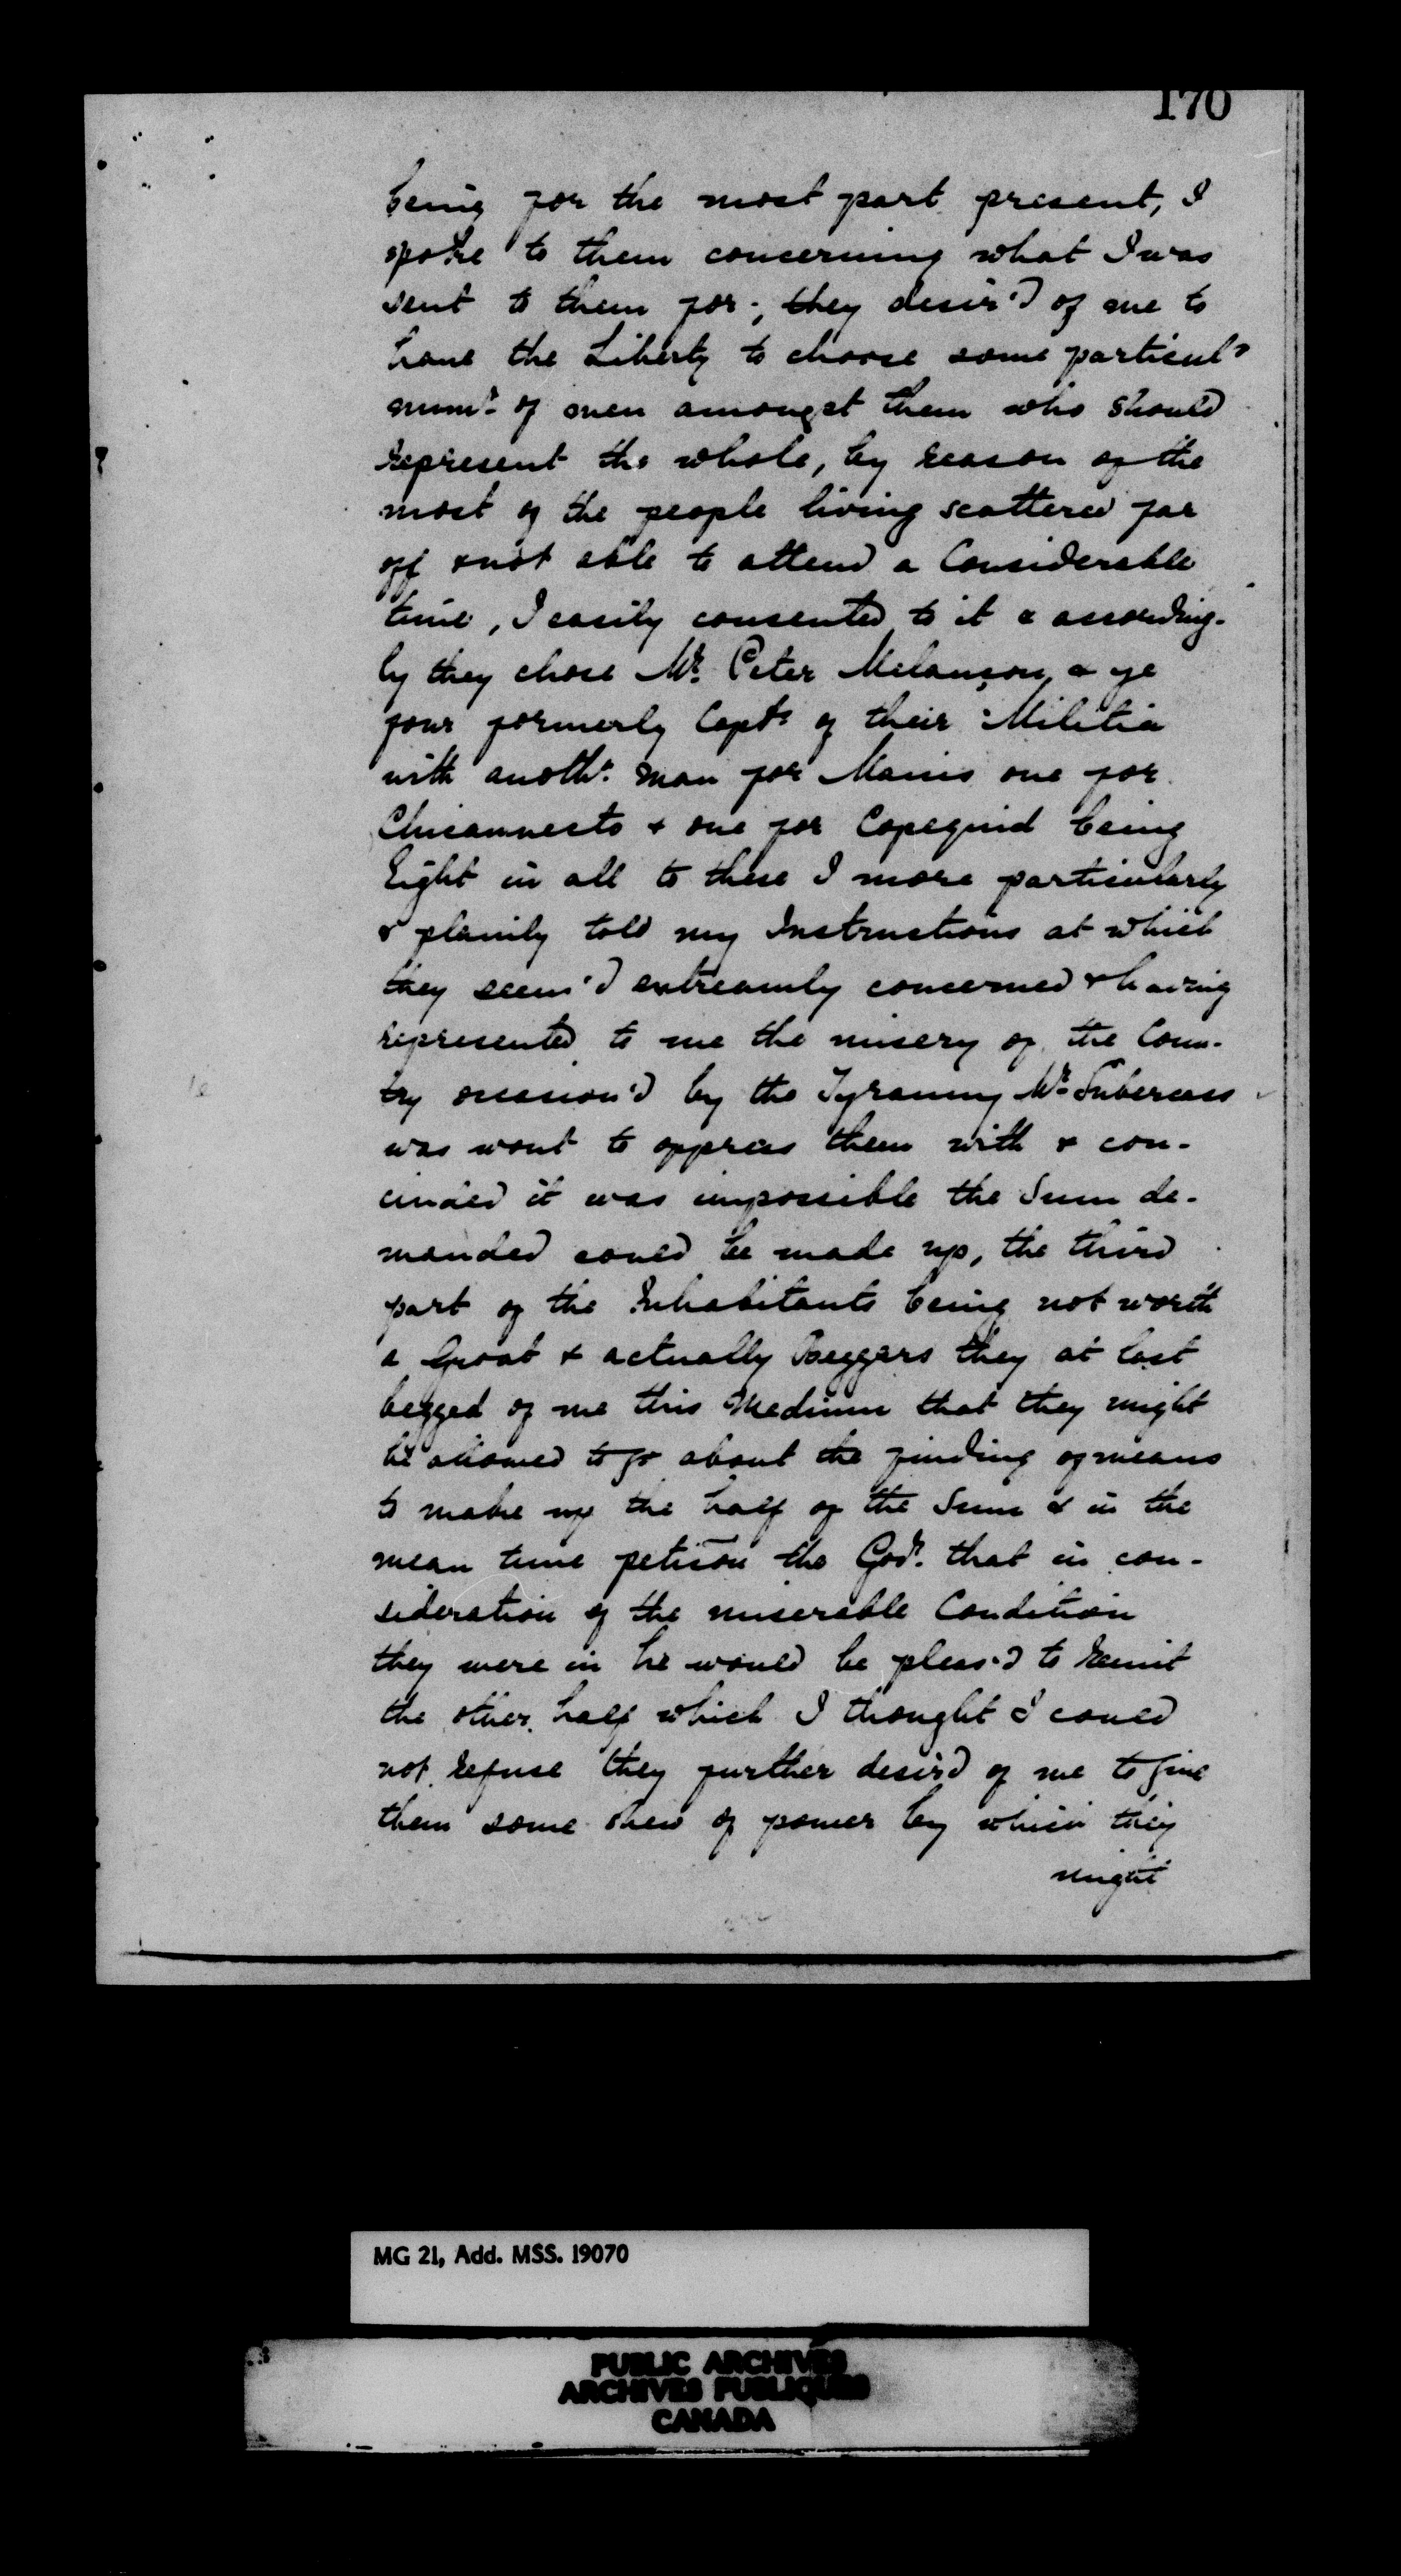 170
being for the most part present, I
spoke to them concerning what I was
sent to them for; they desir'd of me to
have the Liberty to choose some particulr
numr. of men amongst them who should
represent the whole, by reason of the
most of the people living scattered far
off & not able to attend a Considerable
time, I easily consented to it & according-
ly they chose Mr. Peter Melançon, & ye
four formerly Capts of their Militia
with anothr. man for Manis one for
Chicannecto & one for Copequid being
Eight in all to these I more particularly
& plainly told my Instructions at which
they seem'd extreamly concerned & having
represented to me the misery of the Coun-
try occasion'd by the Tyranny Mr. Subercass
was wont to oppress them with & con-
cinded it was impossible the Sum de-
manded could be made up, the third
part of the Inhabitants being not worth
a Groat & actually Beggars they at last
begged of me this Medium that they might
be allowed to go about the finding of means
to make up the half of the Sum & in the
mean time petition the Govr. that in con-
sideration of the miserable Condition
they were in he would be pleas'd to Remit
the other half which I thought I could
not refuse they further desir'd of me to give
them some shew of power by which they
might
MG 21, Add. MSS. 19070
PUBLIC ARCHIVES
ARCHIVES PUBLIQUES
CANADA